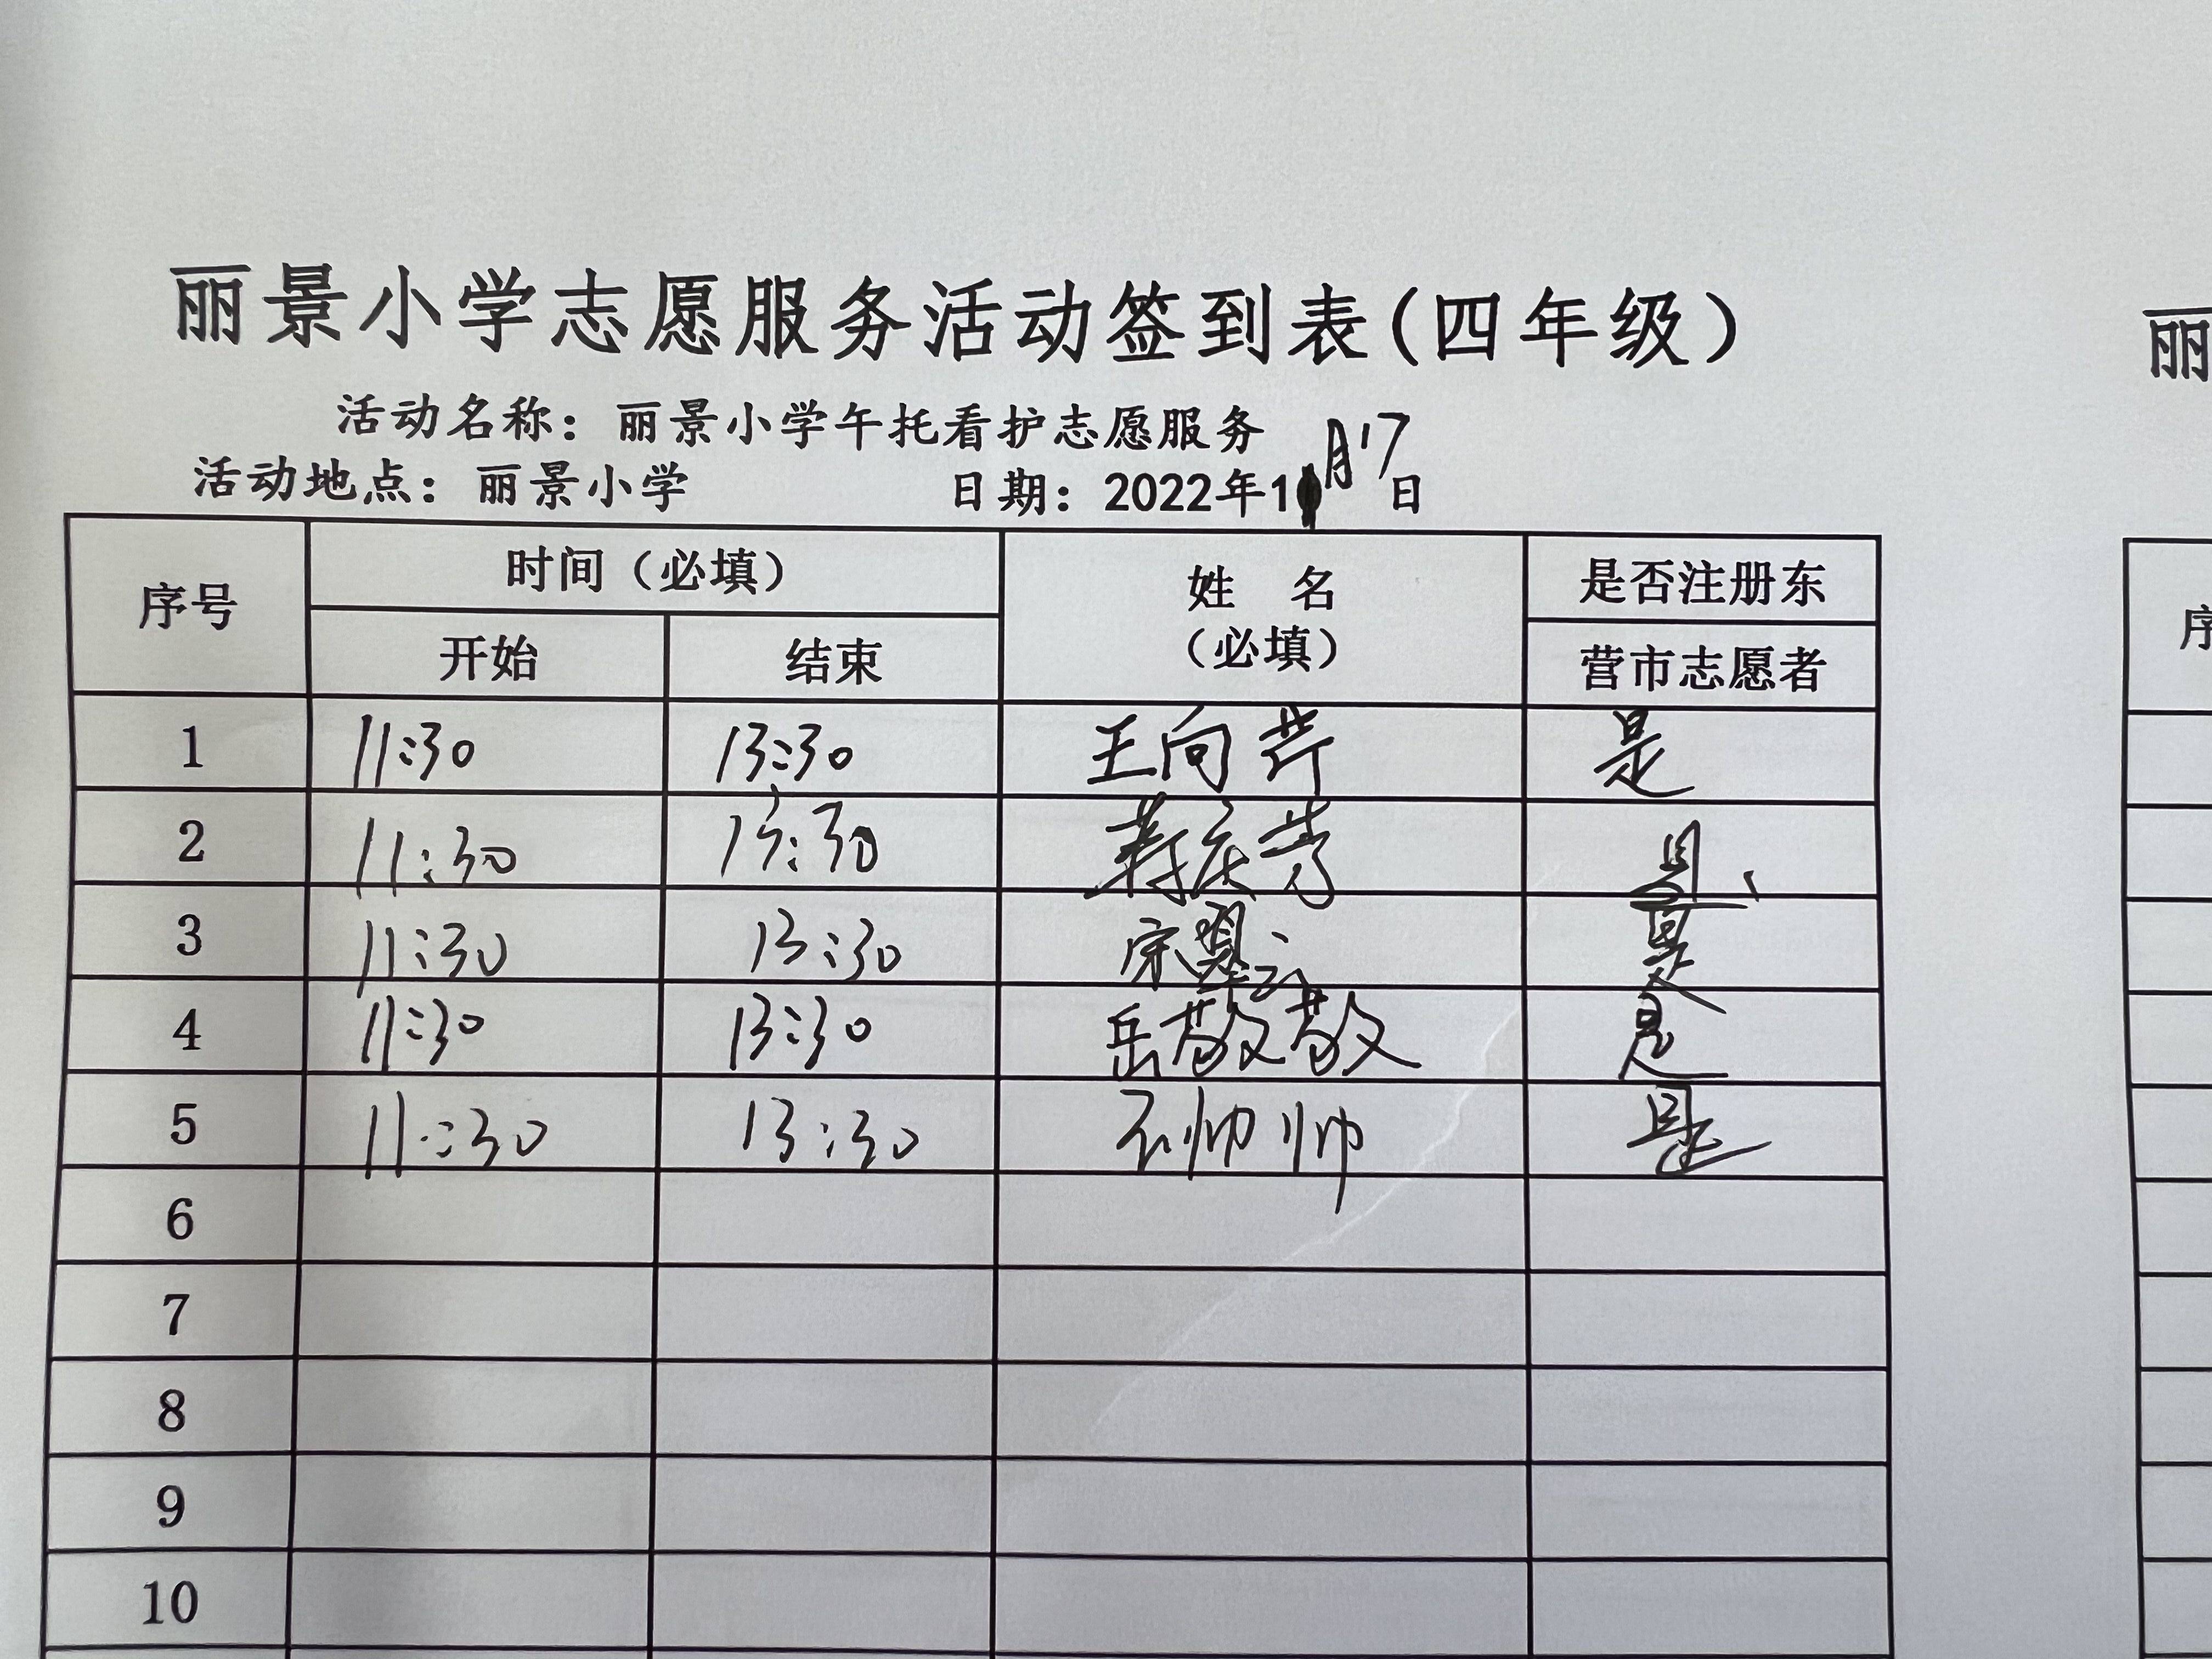 丽景小学志愿服务活动签到表(四年级)
活动名称：丽景小学午托看护志愿服务
活动地点：丽景小学 日期：2022年11月17日
序号 时间（必填） 姓 名（必填） 是否注册东营市志愿者
开始 结束
1 11:30 13:30 王向芹 是
2 11:30 13:30 芳 是
3 11:30 13:30 宋 是
4 11:30 13:30 岳敬敬 是
5 11:30 13:30 石帅帅 是
6
7
8
9
10
丽
序